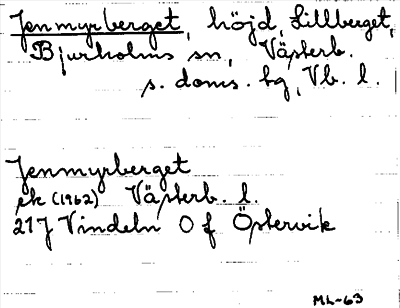 Jenmyrberget, höjd, Lillberget,
Bjurholms sn, Västerb.
s. doms. hg, Vb. l.
Jenmyrberget
ek (1962) Västerb. l.
21J Vindeln 0 f Östervik
ML-63